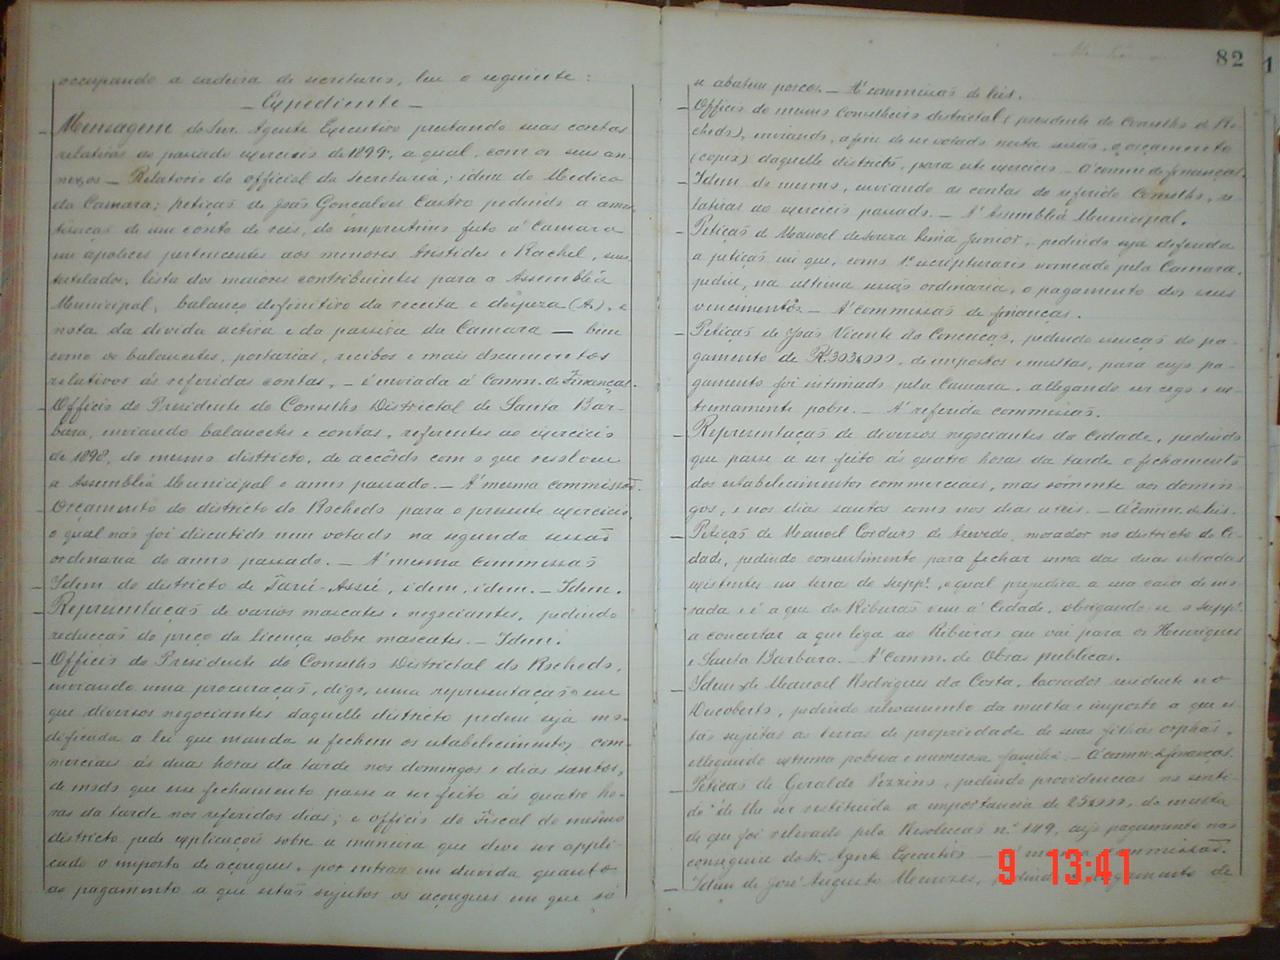 occupando a cadeira de secretario, leu o seguinte:
— Expediente —
Mensagem do Snr. Agente Executivo prestando suas contas
relativas ao passado exercicio de 1899, a qual, com os seus an-
nexos — Relatorio do official da secretaria; idem do Medico
da Camara; petição de João Gonçalves Castro pedindo a amor-
tisação de um conto de reis, do imprestimo feito á Camara
em apolices pertencentes aos menores Aristides e Rachel, seus
tutelados, lista dos maiores contribuintes para a Assembléa
Municipal, balanço definitivo da receita e despeza (A), e
nota da divida activa e da passiva da Camara — bem
como os balancetes, portarias, recibos e mais documentos
relativos ás referidas contas, — é enviada á Comm. de Finanças.
Officio do Presidente do Conselho Districtal de Santa Bar-
bara, enviando balancetes e contas, referentes ao exercicio
de 1898, do mesmo districto, de accôrdo com o que resolveu
a Assembléa Municipal o anno passado. — Á mesma commissão.
Orçamento do districto do Rochedo para o presente exercicio,
o qual não foi discutido nem votado na segunda sessão
ordinaria do anno passado. — Á mesma commissão
Idem do districto de Tarú-Assú, idem, idem. — Idem.
Representação de varios mascates e negociantes, pedindo
reducção do preço da licença sobre mascates. — Idem.
Officio do Presidente do Conselho Districtal do Rochedo,
enviando uma procuração, digo, uma representação em
que diversos negociantes daquelle districto pedem seja mo-
dificada a lei que manda se fechem os estabelecimentos com-
merciaes ás duas horas da tarde nos domingos e dias santos,
de modo que esse fechamento passe a ser feito ás quatro ho-
ras da tarde nos referidos dias; e officio do Fiscal do mesmo
districto pede explicações sobre a maneira que deve ser appli-
cado o imposto de açougues, por entrar em duvida quanto
ao pagamento a que estão sujeitos os açougues em que só
82
se abatem porcos. — Á commissão de leis.
Officio do mesmo Conselheiro districtal (presidente do Conselho do Ro-
chedo), enviando, afim de ser votado nesta sessão, o orçamento
(copia) daquelle districto, para este exercicio — Á comm. de finanças.
Idem do mesmo, enviando as contas do referido Conselho, re-
lativas ao exercicio passado. — Á Assembléa Municipal.
Petição de Manoel de Souza Lima Junior, pedindo seja deferida
a petição em que, como 1º escripturario nomeado pela Camara,
pediu, na ultima sessão ordinaria, o pagamento dos seus
vencimentos. — Á commissão de finanças.
Petição de João Vicente da Conceição, pedindo isenção do pa-
gamento de de impostos e multas, para cujo pa-
gamento foi intimado pela Camara, allegando ser cego e ex-
tremamente pobre. — Á referida commissão.
Representação de diversos negociantes da Cidade, pedindo
que passe a ser feito ás quatro horas da tarde o fechamento
dos estabelecimentos commerciaes, mas sómente aos domin-
gos, e nos dias santos como nos dias uteis. — Á comm. de leis.
Petição de Manoel Cordeiro de Azevedo, morador no districto da Ci-
dade, pedindo consentimento para fechar uma das duas estradas
existentes em terra do suppe., a qual prejudica a sua casa de mo-
rada e é a que do Ribeirão vem á Cidade, obrigando-se o suppe.
a concertar a que liga ao Ribeirão que vai para os Henriques
e Santa Barbara. — Á Comm. de Obras publicas.
Idem de Manoel Rodrigues da Costa, lavrador residente no
Descoberto, pedindo relevamento da multa e imposto a que es-
tão sujeitas as terras de propriedade de suas filhas orphãs,
allegando extrema pobreza e numerosa familia. — Á comm. de finanças.
Petição de Geraldo Pizzino, pedindo providencias no senti-
do de lhe ser restituida a importancia de 25$000, da multa
de que foi relevado pela Resolução n.º 149, cujo pagamento não
conseguiu do Sr. Agente Executivo — Á mesma commissão.
Idem de José Augusto Menezes, pedindo pagamento de
9 13:41